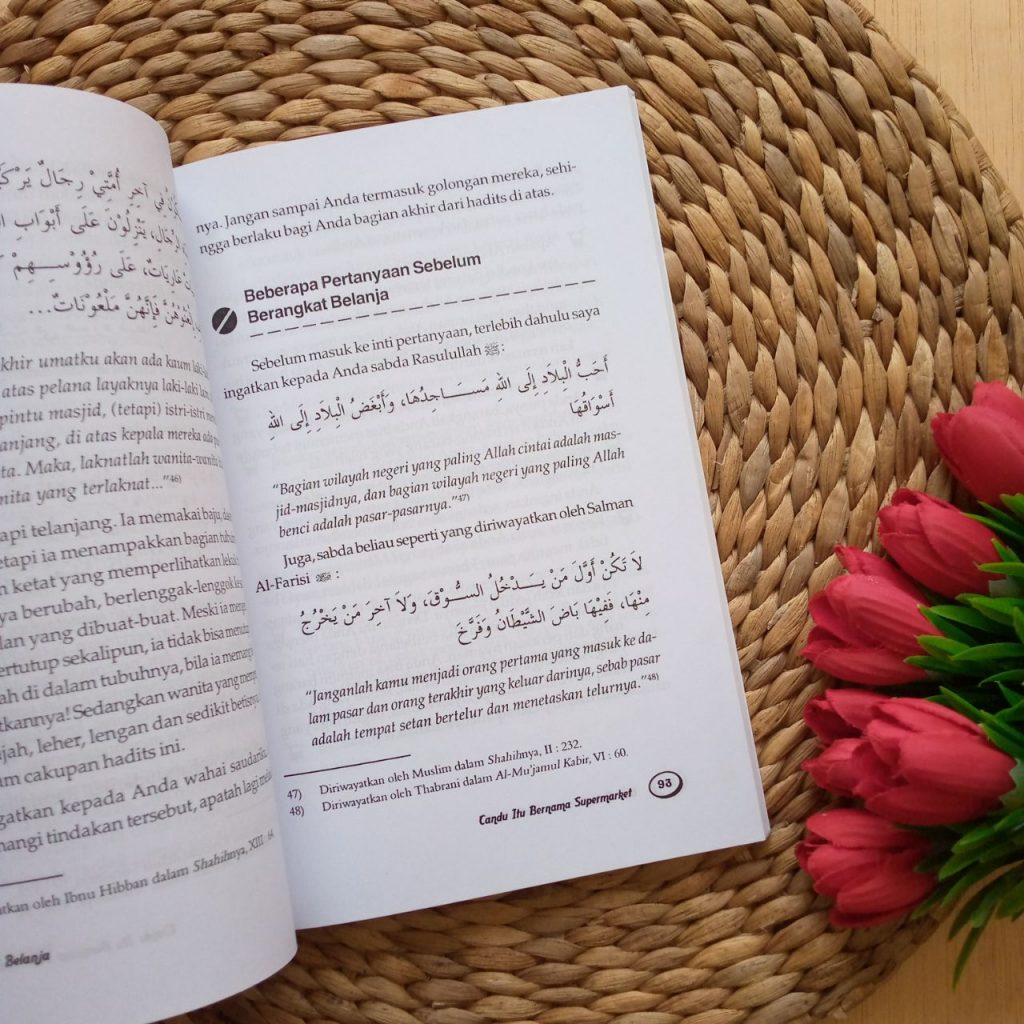 فِي آخِرِ أُمَّتِيْ رِجَالٌ
الرِّجَالِ، يَنْزِلُوْنَ عَلَى أَبْوَابِ
عَارِيَاتٌ، عَلَى رُؤُوْسِهِمْ
فَإِنَّهُنَّ مَلْعُوْنَاتٌ...
akhir umatku akan ada kaum
atas pelana layaknya laki-laki
pintu masjid, (tetapi) istri-istri
di atas kepala mereka ada
Maka, laknatlah wanita-wanita
yang terlaknat..."46)
telanjang. Ia memakai baju,
tetapi ia menampakkan bagian
ketat yang memperlihatkan
berubah, berlenggak-lenggok
yang dibuat-buat. Meski ia
tertutup sekalipun, ia tidak bisa
di dalam tubuhnya, bila ia
Sedangkan wanita yang
leher, lengan dan sedikit betisnya
cakupan hadits ini.
kepada Anda wahai
tindakan tersebut, apatah lagi
oleh Ibnu Hibban dalam Shahihnya, XIII
Belanja
nya. Jangan sampai Anda termasuk golongan mereka, sehi-
ngga berlaku bagi Anda bagian akhir dari hadits di atas.
Beberapa Pertanyaan Sebelum
Berangkat Belanja
Sebelum masuk ke inti pertanyaan, terlebih dahulu saya
ingatkan kepada Anda sabda Rasulullah ﷺ:
أَحَبُّ الْبِلَادِ إِلَى اللهِ مَسَاجِدُهَا، وَأَبْغَضُ الْبِلَادِ إِلَى اللهِ
أَسْوَاقُهَا
"Bagian wilayah negeri yang paling Allah cintai adalah mas-
jid-masjidnya, dan bagian wilayah negeri yang paling Allah
benci adalah pasar-pasarnya."47)
Juga, sabda beliau seperti yang diriwayatkan oleh Salman
Al-Farisi :
لَا تَكُنْ أَوَّلَ مَنْ يَدْخُلُ السُّوْقَ، وَلَا آخِرَ مَنْ يَخْرُجُ
مِنْهَا، فَفِيْهَا بَاضَ الشَّيْطَانُ وَفَرَّخَ
"Janganlah kamu menjadi orang pertama yang masuk ke da-
lam pasar dan orang terakhir yang keluar darinya, sebab pasar
adalah tempat setan bertelur dan menetaskan telurnya."48)
47) Diriwayatkan oleh Muslim dalam Shahihnya, II : 232.
48) Diriwayatkan oleh Thabrani dalam Al-Mu'jamul Kabir, VI : 60.
Candu Itu Bernama Supermarket 93